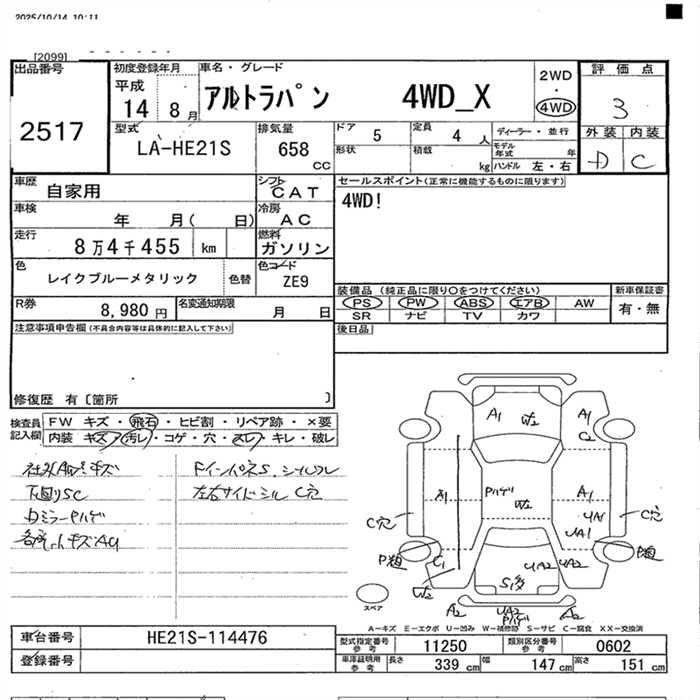 2025/10/14 10:11
[2099]
出品番号
2517
初度登録年月
平成
14 8月
車名・グレード
アルトラパン 4WD_X
2WD
・
4WD
評価点
3
外装 内装
D C
型式
LA-HE21S
排気量
658
cc
ドア 5
定員 4 人
形状
積載
kg
ディーラー・並行
モデル年式 年
ハンドル 左・右
車歴
自家用
シフト
CAT
車検
年 月( 日)
冷房
AC
走行
8万4千455 km
燃料
ガソリン
色
レイクブルーメタリック
色替
色コード
ZE9
R券
8,980円
名変通知期限
月 日
セールスポイント(正常に機能するものに限ります)
4WD!
装備品(純正品に限り○をつけてください)
PS PW ABS エアB AW
SR ナビ TV カワ
新車保証書
有・無
後日品
注意事項申告欄(不具合内容等は具体的に記入して下さい)
修復歴 有〔箇所 〕
検査員記入欄
FW キズ・飛石・ヒビ割・リペア跡・×要
内装 キズ・汚レ・コゲ・穴・スレ・キレ・破レ
下回りSC
DミラーPハゲ
左右サイドシル C穴
A1
W2
A1
C2
A1
Pハゲ
W2
A1
UA1
UA1
C穴
C穴
P粗
P粗
C1
W2
UA2
UA2
S1多
A2
UA2
Pハゲ
A2
スペア
A−キズ E−エクボ U−凹み W−補修跡 S−サビ C−腐食 XX−交換済
車台番号
HE21S-114476
登録番号
型式指定番号
参考
11250
類別区分番号
参考
0602
車庫証明用
参考
長さ 339 cm
幅 147 cm
高さ 151 cm